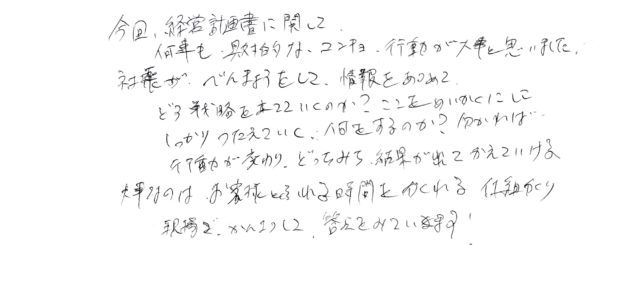 今回、経営計画書に関して
何事も、具体的な、コンキョ、行動が大事と思いました。
社長が、べんきょうをして、情報をあつめて
どう戦略を立てていくのか?ここをめいかくにして
しっかりつたえていく、何をするのか?分かれば
行動が変わり、どっちみち、結果が出てかえていける
大事なのは、お客様とふれる時間をつくれる仕組づくり
現場を、かんさつして、答えをみていきます!